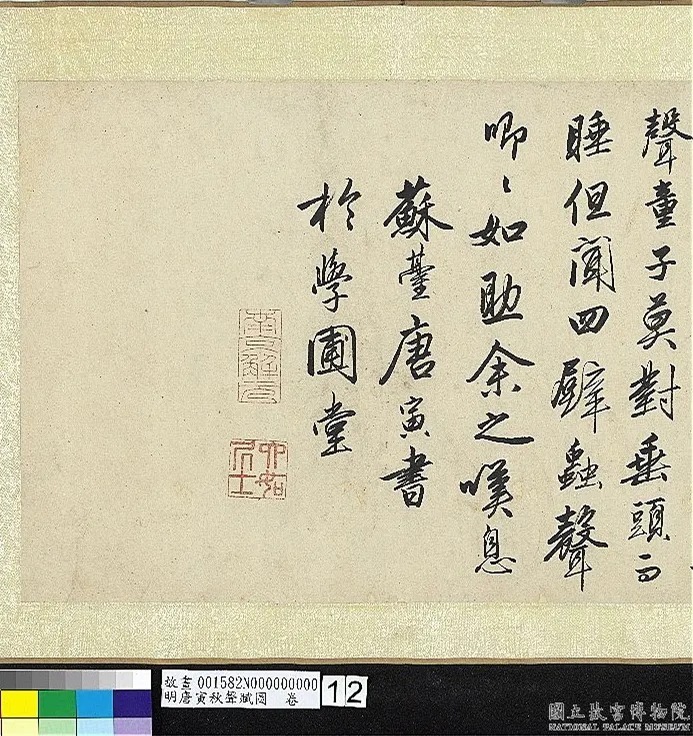 聲童子莫對垂頭而
睡但聞四壁蟲聲
唧〻如助余之嘆息
蘇臺唐寅書
於學圃堂
南京解元
六如居士
故畫 001582N000000000
明唐寅秋聲賦圖 卷
12
國立故宮博物院
NATIONAL PALACE MUSEUM